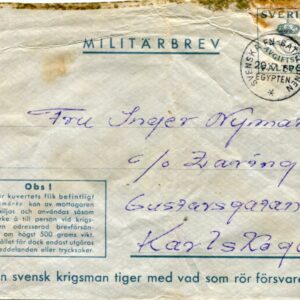 SVERI
MILITÄRBREV
SVENSKA FN-BAT
AVGIFTSF
EGYPTEN
Fru Inger Nyman
c/o Waring
Gustavsgatan
Karlskoga
Obs!
kuvertets flik befintligt
märke kan av mottagaren
och användas såsom
å till person vid krigs-
adresserad brevförsän-
om högst 500 grams vikt.
ållet får dock endast utgöras
eddelanden eller trycksaker.
n svensk krigsman tiger med vad som rör försvare